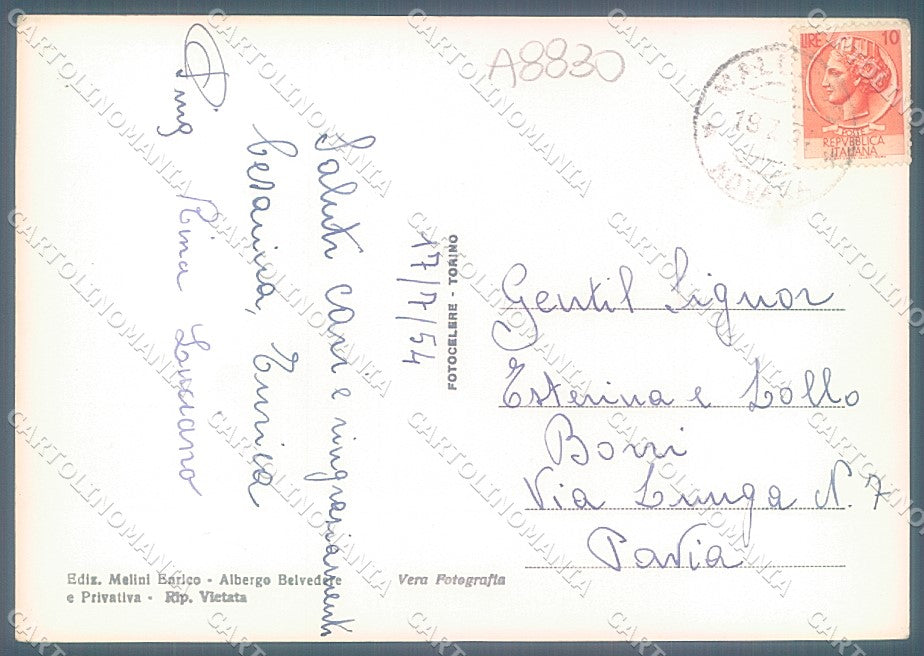 A8830
LIRE 10
POSTE
REPVBBLICA
ITALIANA
19 7
17/7/54
Saluti cari e ringraziamenti
Cesarina, Enrica
Pina Luciano
FOTOCELERE - TORINO
Gentil Signor
Esterina e Lollo
Borri
Via Lunga N. 7
Pavia
Ediz. Melini Enrico - Albergo Belvedere
e Privativa - Rip. Vietata
Vera Fotografia
CARTOLINOMANIA